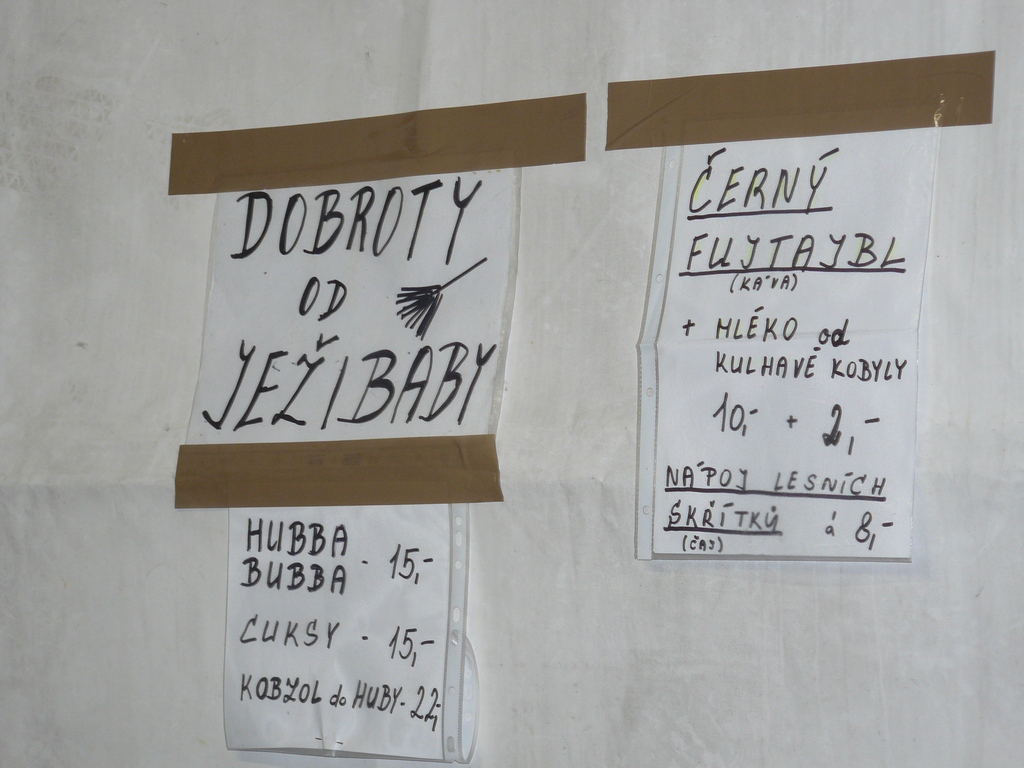 DOBROTY
OD
JEŽIBABY
HUBBA
BUBBA - 15,-
CUKSY - 15,-
KOBZOL do HUBY - 22,-
ČERNÝ
FUJTAJBL
(KÁVA)
+ MLÉKO od
KULHAVÉ KOBYLY
10,- + 2,-
NÁPOJ LESNÍCH
SKŘÍTKŮ á 8,-
(ČAJ)